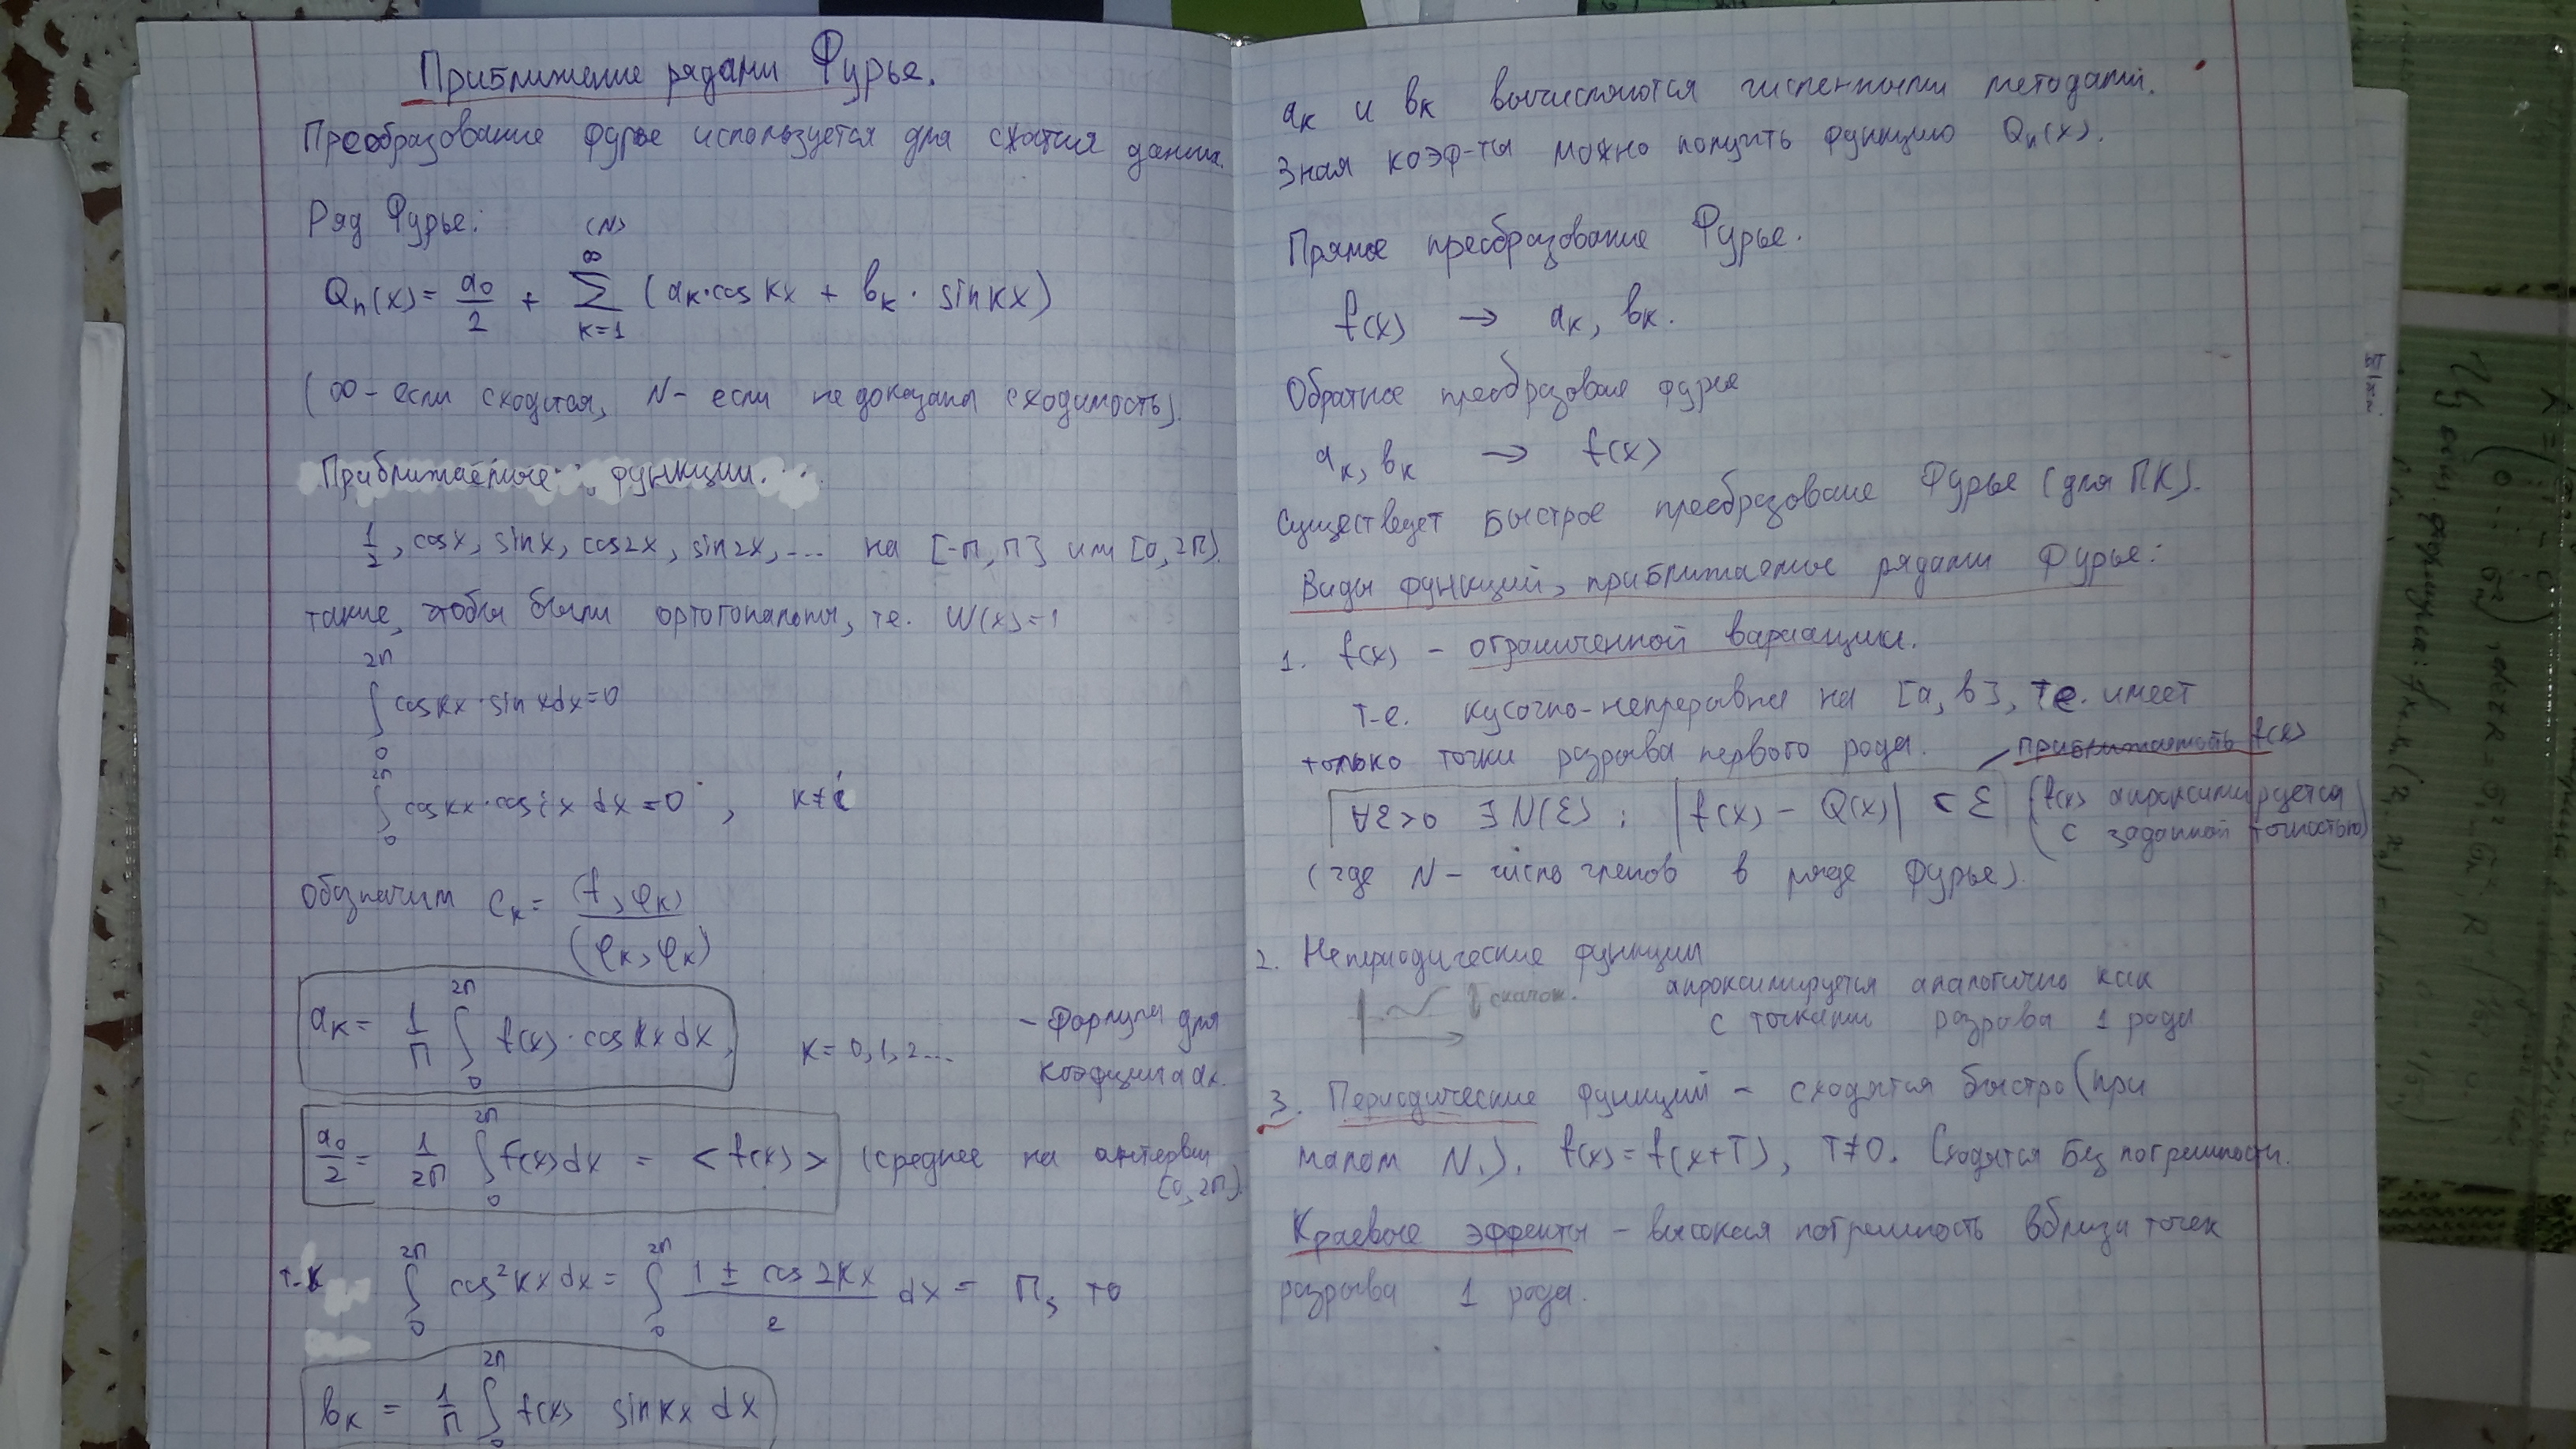 Приближение рядами Фурье.
Преобразование Фурье используется для сжатия данных.
Ряд Фурье:
(N)
Qn(x) = a₀/2 + ∑_{k=1}^{∞} (aк·cos kx + bк · sin kx)
(∞ - если сходится, N - если не доказана сходимость).
Приближаемые функции.
1/2, cosx, sinx, cos2x, sin2x, ... на [-π, π] или [0, 2π].
такие, чтобы были ортогональны, т.е. W(x)=1
∫₀^{2π} cos kx · sin x dx = 0
∫₀^{2π} cos kx · cos ix dx = 0 , k≠i
Обозначим cк = (f, φк) / (φк, φк)
aк = 1/π ∫₀^{2π} f(x) · cos kx dx, k = 0, 1, 2... - формула для
коэфциента aк.
a₀/2 = 1/2π ∫₀^{2π} f(x) dx = < f(x) > (среднее на интервал
[0, 2π])
т.к ∫₀^{2π} cos² kx dx = ∫₀^{2π} (1 ± cos 2kx)/2 dx = π, то
bк = 1/π ∫₀^{2π} f(x) sin kx dx
aк и bк вычисляются численными методами.
Зная коэф-ты можно получить функцию Qn(x).
Прямое преобразование Фурье.
f(x) → aк, bк.
Обратное преобразование Фурье
aк, bк → f(x)
Существует быстрое преобразование Фурье (для ПК).
Виды функций, приближаемые рядами Фурье:
1. f(x) - ограниченной вариации.
т.е. кусочно-непрерывна на [a, b], т.е. имеет
только точки разрыва первого рода. приближаемость f(x)
∀ε>0 ∃N(ε) : |f(x) - Q(x)| < ε (f(x) апроксимируется
с заданной точностью)
(где N - число членов в ряде Фурье).
2. Непериодические функции
скачок. апроксимируется аналогично как
с точками разрыва 1 рода
3. Периодические функций - сходятся быстро (при
малом N.). f(x) = f(x+T), T≠0. Сходятся без погрешности.
Краевые эффекты - высокая погрешность вблизи точек
разрыва 1 рода.